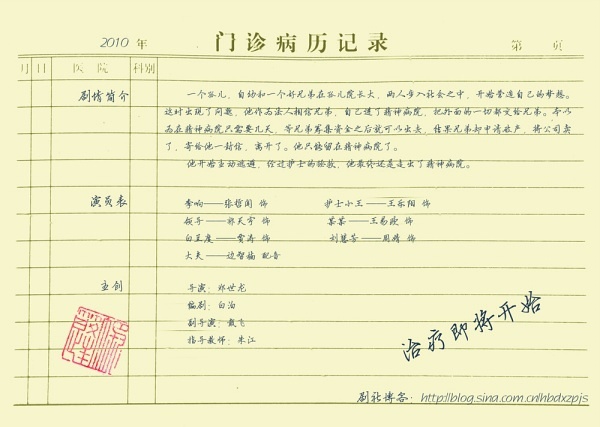 2010 年 门诊病历记录 第 页
月 日 医院 科别
剧情简介
一个孤儿，自幼和一个好兄弟在孤儿院长大，两人步入社会之中，开始营造自己的梦想。
这时出现了问题，他作为法人相信兄弟，自己进了精神病院，把外面的一切都交给兄弟。本以
为在精神病院只需要几天，等兄弟筹集资金之后就可以出去，结果兄弟却申请破产，将公司卖
了，寄给他一封信，离开了。他只能留在精神病院了。
他开始主动逃避，经过护士的拯救，他最终还是走出了精神病院。
演员表
李响——张哲闻 饰 护士小王——王乐阳 饰
领导——郭天宇 饰 某某——王易璇 饰
白呈度——贾涛 饰 刘慧芳——周婧 饰
大夫——边智楠 配音
主创
导演：邓世龙
编剧：白泊
副导演：戴飞
指导教师：朱江
治疗即将开始
剧社博客：http://blog.sina.com.cn/hbdxzpjs